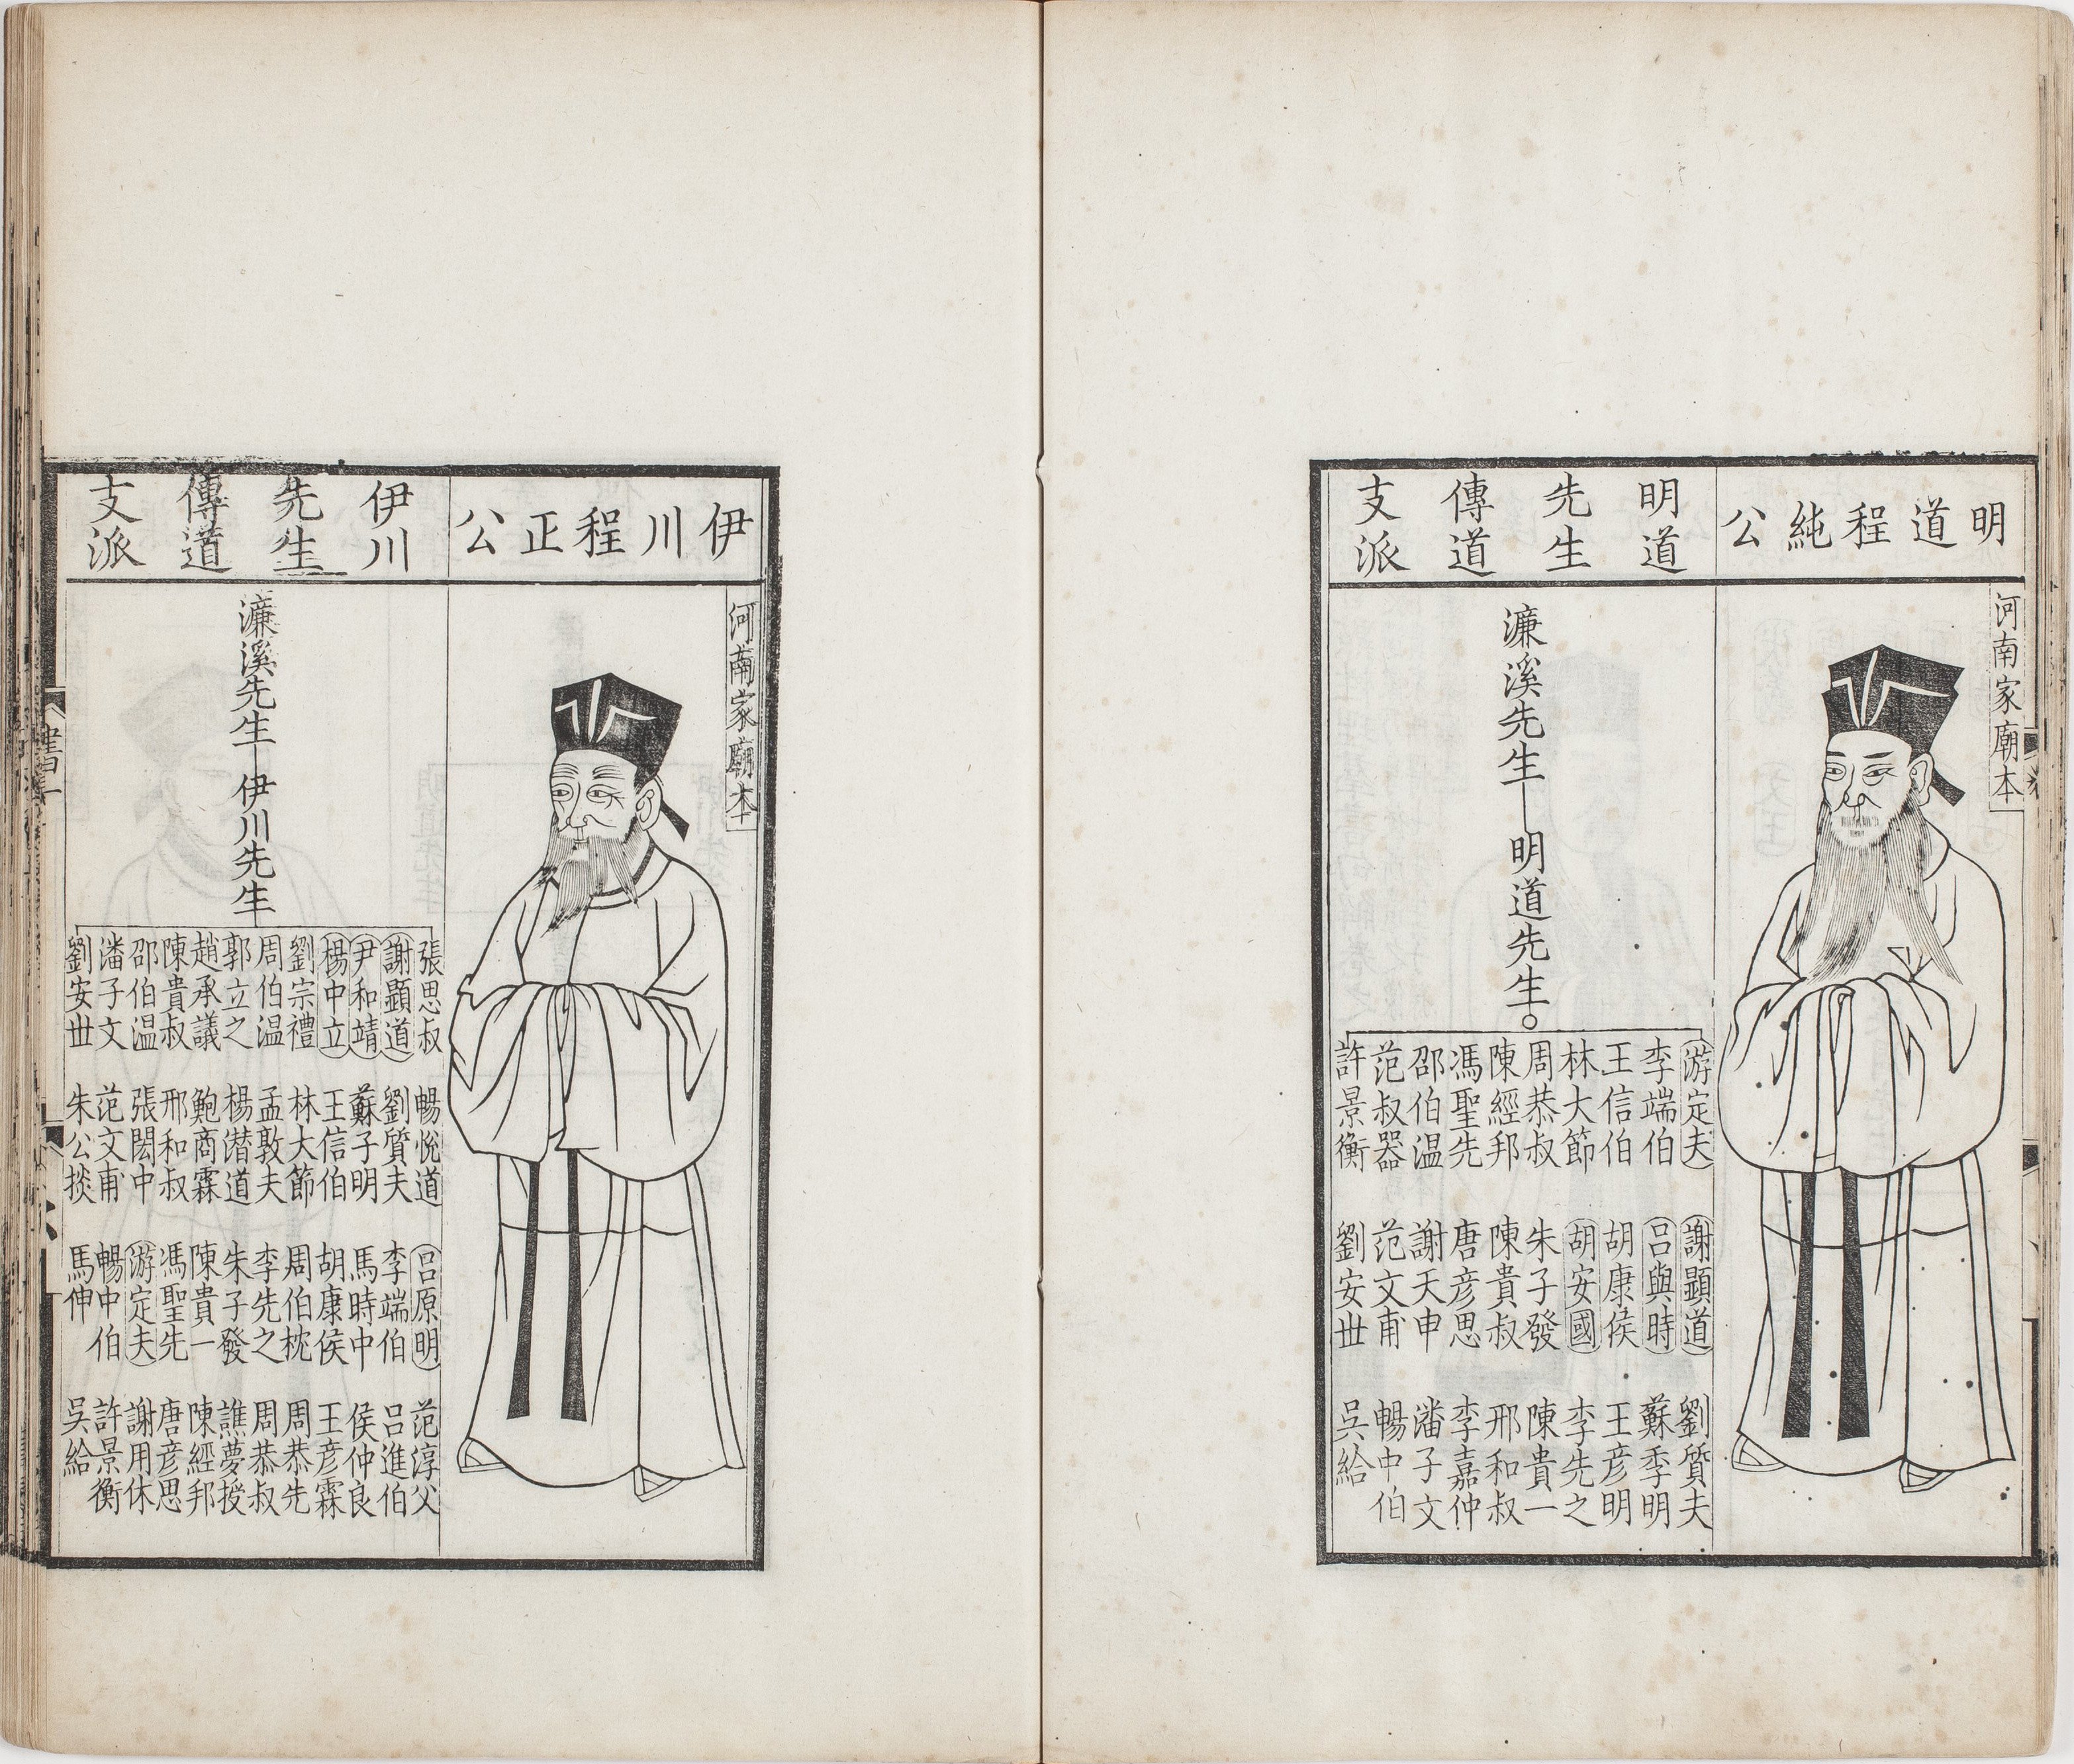 明道程純公
河南家廟本
明道
先生
傳道
支派
濂溪先生
明道先生
游定夫
李端伯
王信伯
林大節
周恭叔
陳經邦
馮聖先
邵伯温
范叔器
許景衡
謝顯道
呂與時
胡康侯
胡安國
朱子發
陳貴叔
唐彦思
謝天申
范文甫
劉安世
劉質夫
蘇季明
王彦明
李先之
陳貴一
邢和叔
李嘉仲
潘子文
暢中伯
吳給
伊川程正公
河南家廟本
伊川
先生
傳道
支派
濂溪先生
伊川先生
張思叔
謝顯道
尹和靖
楊中立
劉宗禮
周伯温
郭立之
趙承議
陳貴叔
邵伯温
潘子文
劉安世
暢悅道
劉質夫
蘇子明
王信伯
林大節
孟敦夫
楊潛道
鮑商霖
邢和叔
張閎中
范文甫
朱公掞
呂原明
李端伯
馬時中
胡康侯
周伯忱
李先之
朱子發
陳貴一
馮聖先
游定夫
暢中伯
馬伸
范淳父
呂進伯
侯仲良
王彦霖
周恭先
周恭叔
譙夢授
陳經邦
唐彦思
謝用休
許景衡
吳給